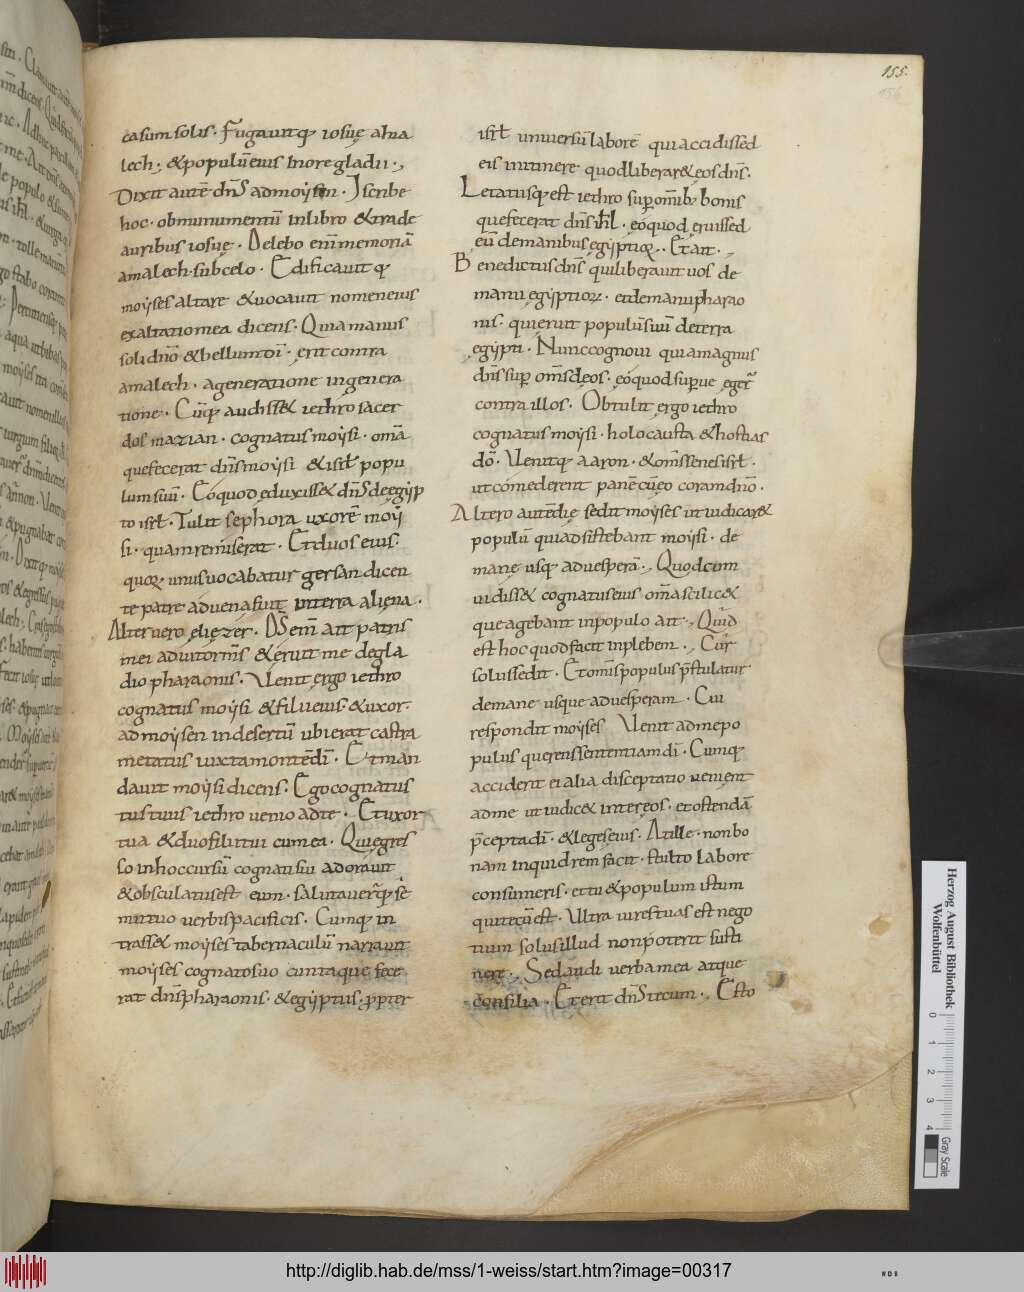 155.
156
casum solis · Fugauitq; iosuę ama
lech · & populū eius inore gladii ·,
Dixit autē dn̄s admoysen · Iscribe
hoc · obmunumentū inlibro & trade
auribus iosuę · Delebo enī memoriā
amalech · subcelo · Edificauit q;
moẏses altare & uocauit nomeneius
exaltatiomea dicens · Quiamanus
soli dn̄o & bellum dī · erit contra
amalech · ageneratione ingenera
tione · Cūq; audiss& iethro sacer
dos mazian · cognatus moẏsi · omā
quefecerat dn̄s moẏsi & isrƚ popu
lum suū · Eóquod eduxiss& dn̄s deegẏp
to isrƚ · Tulit sephora uxorē moẏ
si · quam remiserat · Et duos eius ·
quoꝝ unus uocabatur gersan dicen
te patre aduenafiut interra aliena ·
Alter uero eliezer · Dī enī ait patris
mei adiutor m̄s & éruit me degla
dio pharaonis · Uenit ergo iethro
cognatus moẏsi & filii eius · & uxor ·
ad moẏsen indesertū ubi erat castra
metatus iuxta montē dī · Et man
dauit moẏsi dicens · Ego cognatus
tus tuus iethro uenio adte · Et uxor
tua & duo filii tui cumea · Qui egres
so inhoccursū cognati sui adorauit
& obsculatus est eum · salutauerq; se
mutuo uerbis pacificis · Cumq; in
trass& moẏses tabernaculū narrauit
moẏses cognatosuo cuntaque fece
rat dn̄s pharaonis · & egẏptus · ꝓpter
isrƚ uniuersū laborē qui accidissed
eis initinere quodliberar& eos dn̄s ·
Letatusq; est iethro suꝑ omīb; bonis
quefecerat dn̄s iƚl · eóquod eruissed
eū demanibus egẏptioꝝ · Et ait ·,
Benedictus dn̄s qui liberauit uos de
manu egẏptioꝝ · etdemanu pharao
nis · qui eruit populū suū deterra
egẏpti · Nunc cognoui quia magnus
dn̄s suꝑ om̄s deos · eóquod suꝑue eger̄
contra illos · Obtulit ergo iethro
cognatus moẏsi · holocausta & hostias
dō · Uenitq; aaron · & om̄s senes isrƚ ·
ut cómederent panē cū eo coram dn̄o ·
Altero autē die sedit moẏses ut iudicar&
populū quiadsistebant moẏsi · de
mane usq; aduesperā ·, Quodcum
uidiss& cognatus eius omā scilic&
queagebant inpopulo ait ·, Quid
est hoc quod facis inplebem ·, Cur
solus sedit · Et om̄s populus p̄stulatur
demane usque aduesperam · Cui
respondit moẏses Uenit admepo
pulus querens sententiam dī · Cumq;
acciderit eialia disceptatio ueniƐt
adme ut iudic& inter eos · et ostendā
p̄cepta dī · & leges eius · At ille · nonbo
nam inquid rem facit · stulto labore
consumeris · et tu & populum istum
qui tecū est · Ultra uires tuas est nego
tium solus illud non poterit susti
nere ·, Sed audi uerba mea atque
consilia · Et erit dn̄s tecum ·, Esto
Herzog August Bibliothek
Wolfenbüttel
0 1 2 3 4
Gray Scale
http://diglib.hab.de/mss/1-weiss/start.htm?image=00317